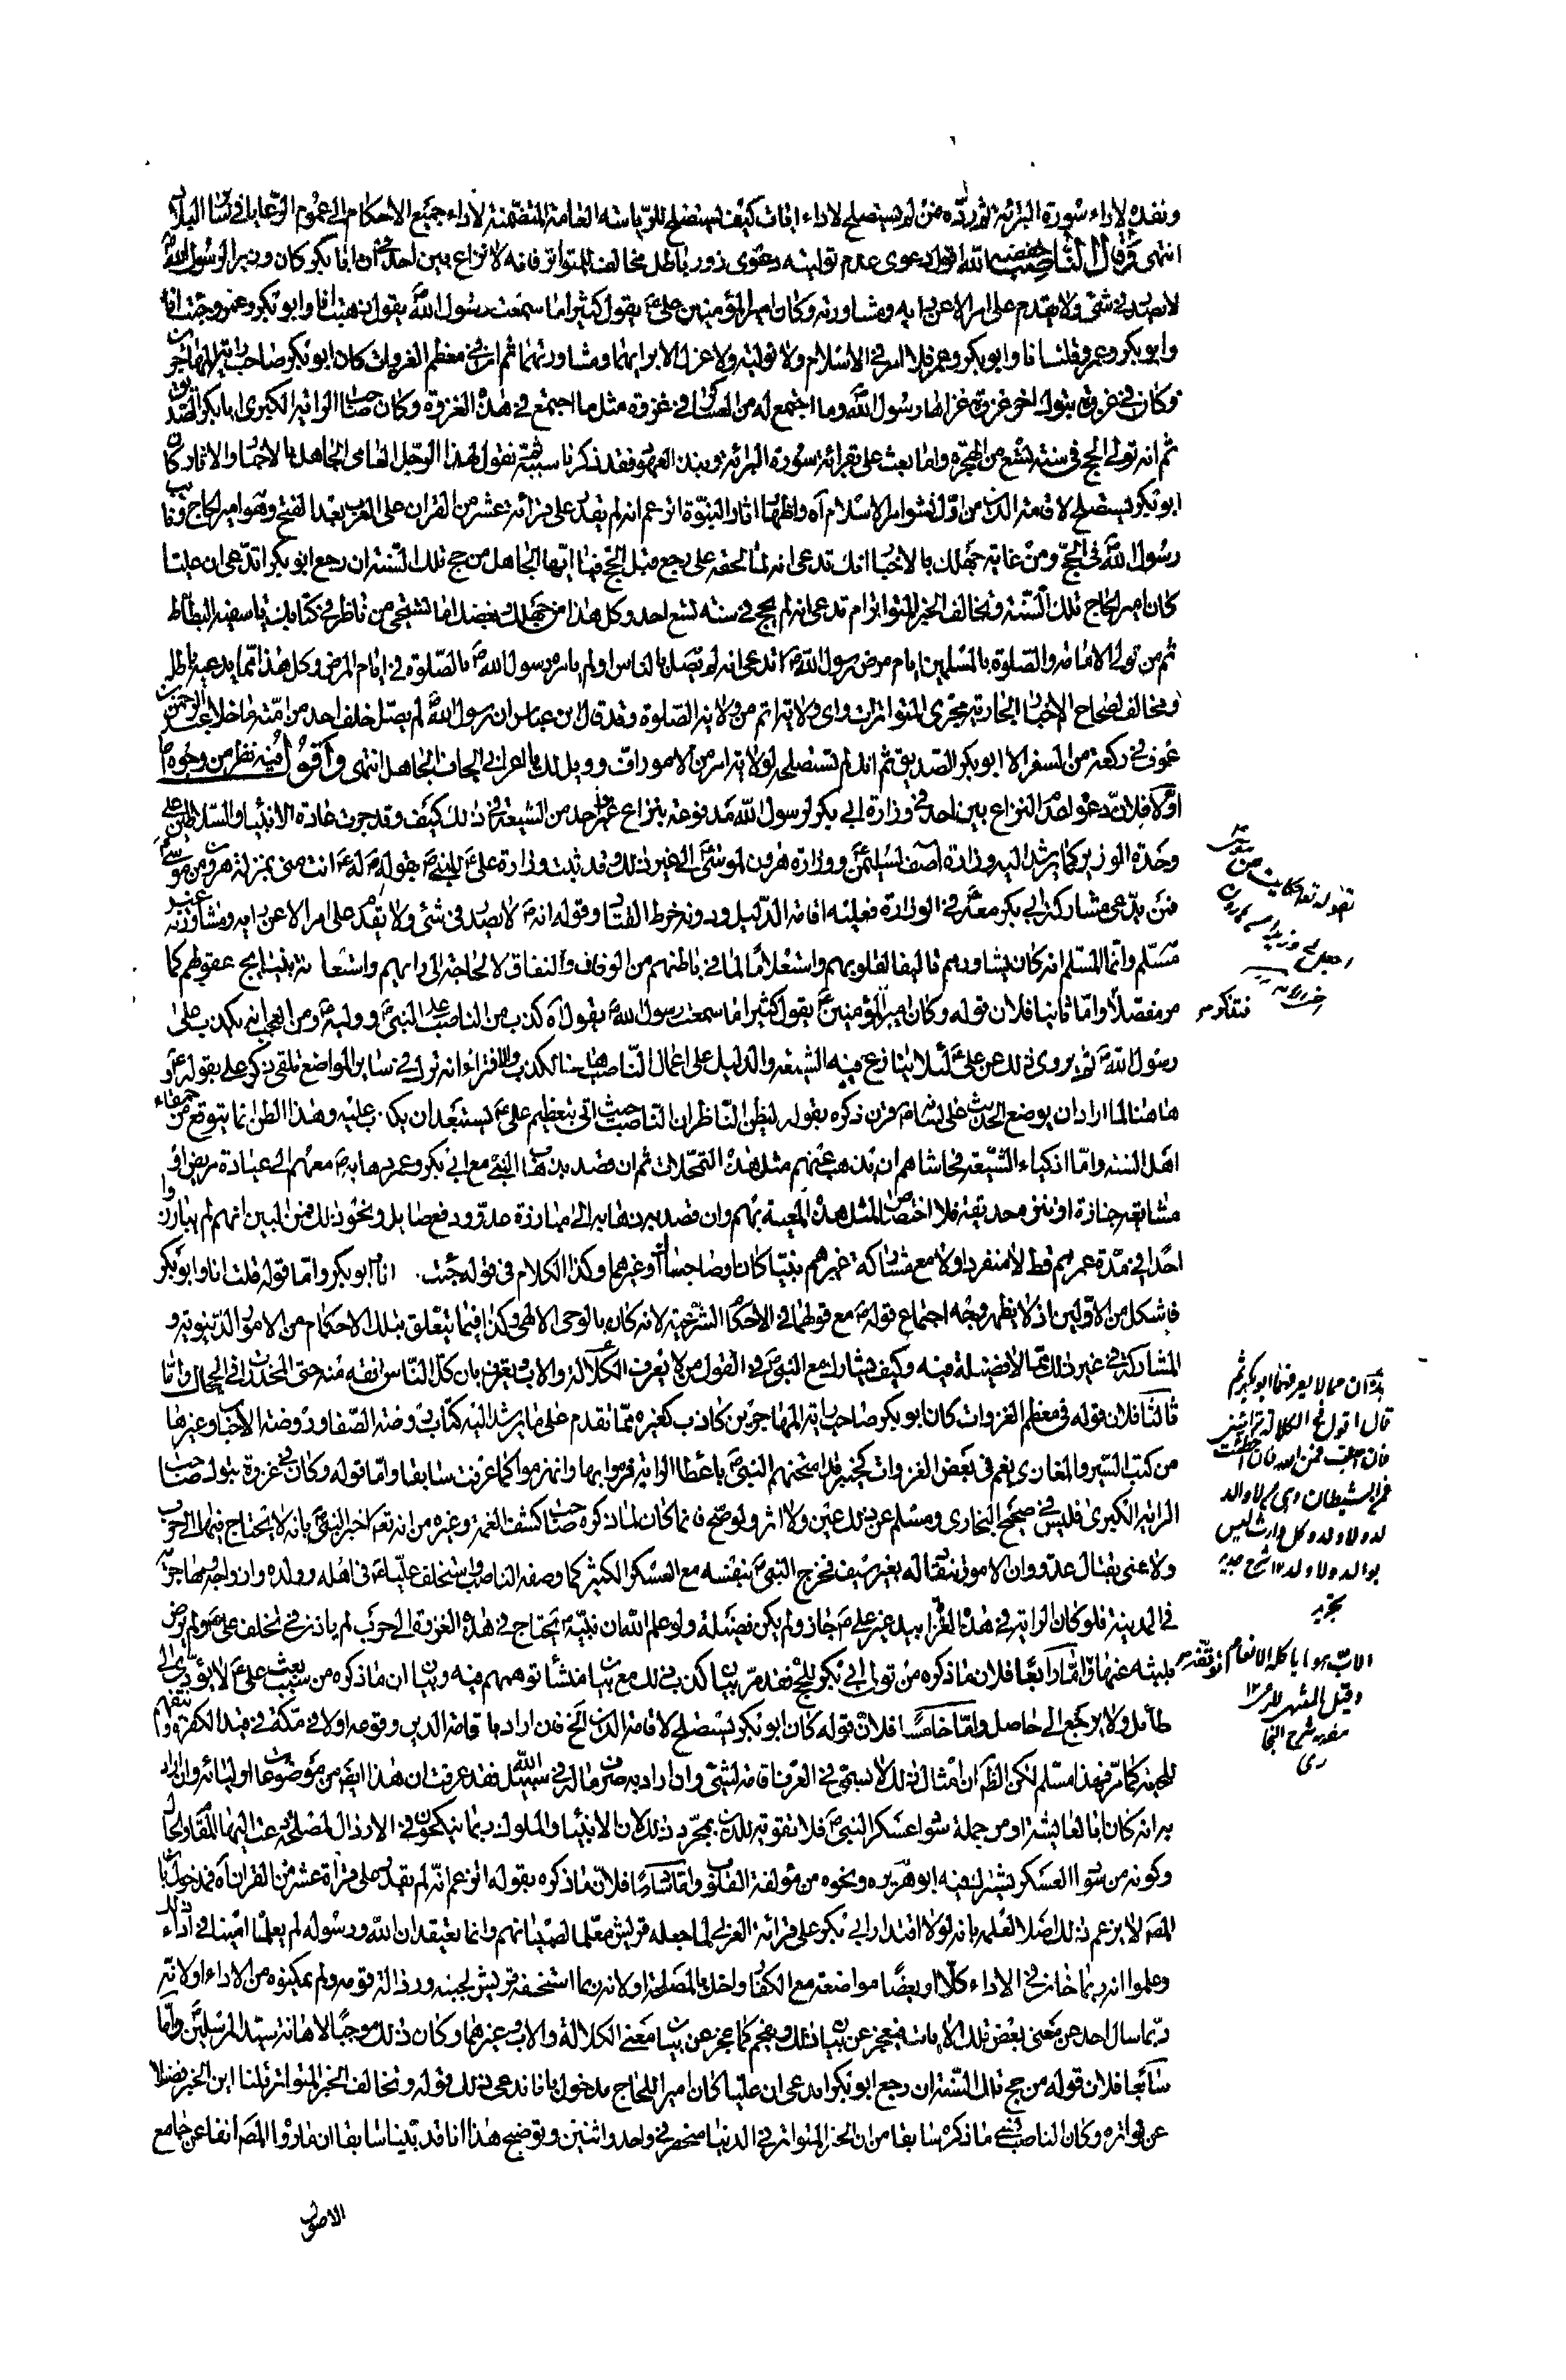 وتفده لاداء سورة البرائة ثم رده ومن لم يستصلح لاداء ايات كيف يستصلح للرياسة العامة المتضمنة لاداء جميع الاحكام الى عموم الرعايا في سائر البلاد
انتهى وقال الناصب خفضه الله اقول دعوى عدم توليته دعوى زور باطل مخالف للمتواتر فانه لا نزاع بين احد في ان ابا بكر كان وزيرا لرسول الله ص
لا يصدر في شئ ولا يقدم على امر الا عن رايه ومشاورته وكان امير المؤمنين علي ع يقول كثيرا ما سمعت رسول الله ص يقول ذهبت انا وابو بكر وعمر وجئت انا
وابو بكر وعمر وقلت انا وابو بكر وعمر فلا امر في الاسلام ولا تولية ولا عزل الا برايهما ومشاورتهما ثم ان في معظم الغزوات كان ابو بكر صاحب راية المهاجرين
وكان في غزوة تبوك اخر غزوة غزاها رسول الله ص وما اجتمع له من العساكر في غزوة مثل ما اجتمع في هذه الغزوة وكان صاحب الراية الكبرى ابا بكر الصديق
ثم انه تولى الحج في سنة تسع من الهجرة واما بعث علي بقرائة سورة البرائة ونبذ العهود فقد ذكرنا سببه ثم نقول لهذا الرجل العامي الجاهل بالاخبار والاثار كان
ابو بكر يستصلح لاقامة الدين من اول فشو امر الاسلام آه واظهار اثار النبوة اتزعم انه لم يقدر على قرائة عشر من القران على العرب بعد الفتح وهو امير الحاج ونايب
رسول الله في الحج ومن غاية جهلك بالاخبار انك تدعي انه لما لحقه علي رجع قبل الحج فيا ايها الجاهل من حج تلك السنة ان رجع ابو بكر اتدعي ان عليا
كان امير الحاج تلك السنة وتخالف الخبر المتواتر ام تدعي انه لم يحج في سنة تسع احد وكل هذا من جهلك وبغضك اما تستحي من ناظر في كتابك يا سفيه البطاط
ثم من تولى الامامة والصلوة بالمسلمين ايام مرض رسول الله ص اتدعي انه لم يصل بالناس او لم يامر رسول الله ص بالصلوة في ايام المرض وكل هذا مما يدعيه باطل
ومخالف لصحاح الاخبار الجارية مجرى المتواترات واي ولاية اتم من ولاية الصلوة وقد قال ابن عباس ان رسول الله ص لم يصل خلف احد من امته ما خلا عبد الرحمن بن
عوف في ركعة من السفر الا ابو بكر الصديق ثم انه لم تستصلحه لولاية امر من الامور اف وويل لك يا اعرابي الجاف الجاهل انتهى واقول فيه نظر من وجوه اما
اولا فلان دعواه عدم النزاع بين احد في وزارة ابي بكر لرسول الله مدفوعة بنزاع غير واحد من الشيعة في ذلك كيف وقد جرت عادة الانبياء والسلاطين على
وحدة الوزير كما يرشد اليه وزارة آصف لسليمن ع ووزارة هرون لموسى ع الى غير ذلك وقد ثبت وزارة علي ع للنبي ص بقوله ص له ع انت مني بمنزلة هرون من موسى
فمن يدعي مشاركة ابي بكر معه ع في الوزارة فعليه اقامة الدليل ودونه خرط القتاد وقوله انه ص لا يصدر في شئ ولا يقدم على امر الا عن رايه ومشاورته غير
مسلم وانما المسلم انه كان يشاورهم تاليفا لقلوبهم واستعلاما لما في باطنهم من الوفاق والنفاق لا لحاجة الى رايهم كما
مر مفصلا واما ثانيا فلان قوله وكان امير المؤمنين ع يقول كثيرا ما سمعت رسول الله ص يقول آه كذب من الناصب على النبي ص ووليه ع ومن العجب انه يكذب على
رسول الله ص ثم يروي ذلك عن علي ع لئلا ينازع فيه الشيعة والدليل على اعمال الناصب هاهنا الكذب والافتراء انه ترك في ساير المواضع تلقي ذكر علي بقوله ع و
هاهنا لما اراد ان يوضع الحديث على لسانه ع قرن ذكره بقوله ع ليظن الناظر ان الناصب حيث اتى بتعظيم علي ع يستبعد ان يكذب عليه وهذا الظن انما يتوقع من حمقاء
اهل السنة واما اذكياء الشيعة فحاشاهم ان يذهب عنهم مثل هذه التمحلات ثم ان قصد بذهاب النبي ص مع ابي بكر وعمر ذهابه ص معهم الى عيادة مريض او
مشايعة جنازة او تنزه حديقة فلا اختصاص لمثل هذه المعية بهم وان قصد به ذهابه الى مبارزة عدو ودفع صايل ونحو ذلك فمن البين انهم لم يبارزوا
احدا في مدة عمرهم قط لا منفردا ولا مع مشاركة غيرهم نبيا كان او صاحبا او غيرهما وكذا الكلام في قوله جئت انا وابو بكر واما قوله قلت انا وابو بكر
فاشكل من الاولين اذ لا يظهر وجه اجتماع قوله ص مع قولهما في الاحكام الشرعية لانه كان بالوحي الالهي وكذا فيما يتعلق بتلك الاحكام من الامور الدنيوية و
المشاركة في غير ذلك مما لا فضيلة فيه وكيف يشارك مع النبي ص في القول من لا يعرف الكلالة والاب ويعترف بان كل الناس افقه منه حتى المخدرات في الحجال واما
ثالثا فلان قوله في معظم الغزوات كان ابو بكر صاحب راية المهاجرين كاذب كغيره مما تقدم على ما يرشد اليه كتاب روضة الصفا وروضة الاحباب وغيرها
من كتب السير والمغازي نعم في بعض الغزوات كخيبر قد امتحنهم النبي ص باعطاء الراية فمروا بها وانهزموا كما عرفت سابقا واما قوله وكان في غزوة تبوك صاحب
الراية الكبرى فليس في صحيح البخاري ومسلم عن ذلك عين ولا اثر ولو صح فانما كان لما ذكره صاحب كشف الغمة وغيره من انه تعالى اخبر النبي ص بانه لا يحتاج فيها الى الحرب
ولا عنى بقتال عدو وان الامور تنقاد له بغير سيف فخرج النبي ص بنفسه مع العسكر الكثير كما وصفه الناصب واستخلف عليا ع في اهله وولده وازواجه ومهاجره
في المدينة فلو كان الراية في هذه الغزا بيد غير علي ع جاز ولم يكن فضيلة ولو علم الله ان نبيه ص يحتاج في هذه الغزوة الى حرب لم ياذن في تخلف علي ع ولم يرض
بلبثه عنها واما رابعا فلان ما ذكره من تولى ابي بكر للحج فقد مر بيان كذب ذلك مع بيان منشا توهمهم فيه وبيان ان ما ذكره من سبب بعث علي ع لا يؤدي الى
طائل ولا يرجع الى حاصل واما خامسا فلان قوله كان ابو بكر يستصلح لاقامة الدين الخ فان اراد باقامة الدين وقوعه اولا في مكة في قيد الكفرة
للمحبة كما مر فهذا مسلم لكن الظاهر ان امثال ذلك لا يسمى في العرف اقامة لشئ وان اراد به صرف ماله في سبيل الله فقد عرفت ان هذا ايضا من موضوعات اوليائه وان اراد
به انه كان ابا لعايشة او من جملة سواد عسكر النبي ص فلا تقوية للدين بمجرد ذلك لان الانبياء والملوك ربما ينكحون في الارذال لمصلحة
وكونه من سواد العسكر يشترك فيه ابو هريرة ونحوه من مؤلفة القلوب واما سادسا فلان ما ذكره بقوله اتزعم انه لم يقدر على قراءة عشر من القران آه مدخول بان
المص لا يزعم ذلك اصلا لعلمه بانه لولا اقتدار ابي بكر على قرائة العربي لما جعله قريش معلما لصبيانهم وانما يعتقد ان الله ورسوله لم يعلما امينا في اداء ذلك
وعلموا انه ربما خان في الاداء كلا او بعضا مواضعة مع الكفار واخل بالمصلحة او لانه ربما استخفه قريش لجبنه ورذالة قومه ولم يمكنوه من الاداء او لانه
ربما سال احد عن معنى بعض تلك الايات فيعجز عن بيان ذلك ويفحم كما عجز عن بيان معنى الكلالة والاب وغيرهما وكان ذلك موجبا لاهانة سيد المرسلين ص واما
سابعا فلان قوله من حج تلك السنة ان رجع ابو بكر اتدعي ان عليا كان امير الحاج مدخول بانا ندعي ذلك قوله وتخالف الخبر المتواتر قلنا اين الخبر فضلا
عن تواتره وكان الناصب نسي ما ذكره سابقا من ان الخبر المتواتر في الدنيا منحصر في واحد واثنين وتوضيح هذا انا قد بينا سابقا ان ما رواه المص انفا عن جامع
الاصول
فتفكر
هذان مما لا يعرفهما ابو بكر ثم
قال اقول في الكلالة برائي
فان اصبت فمن الله وان اخطئت
فمن الشيطان وهي ما لا والد
له ولا ولد وكل وارث ليس
بوالد ولا ولد ١٢ شرح جديد
تجريد
الاب هو ما ياكله الانعام